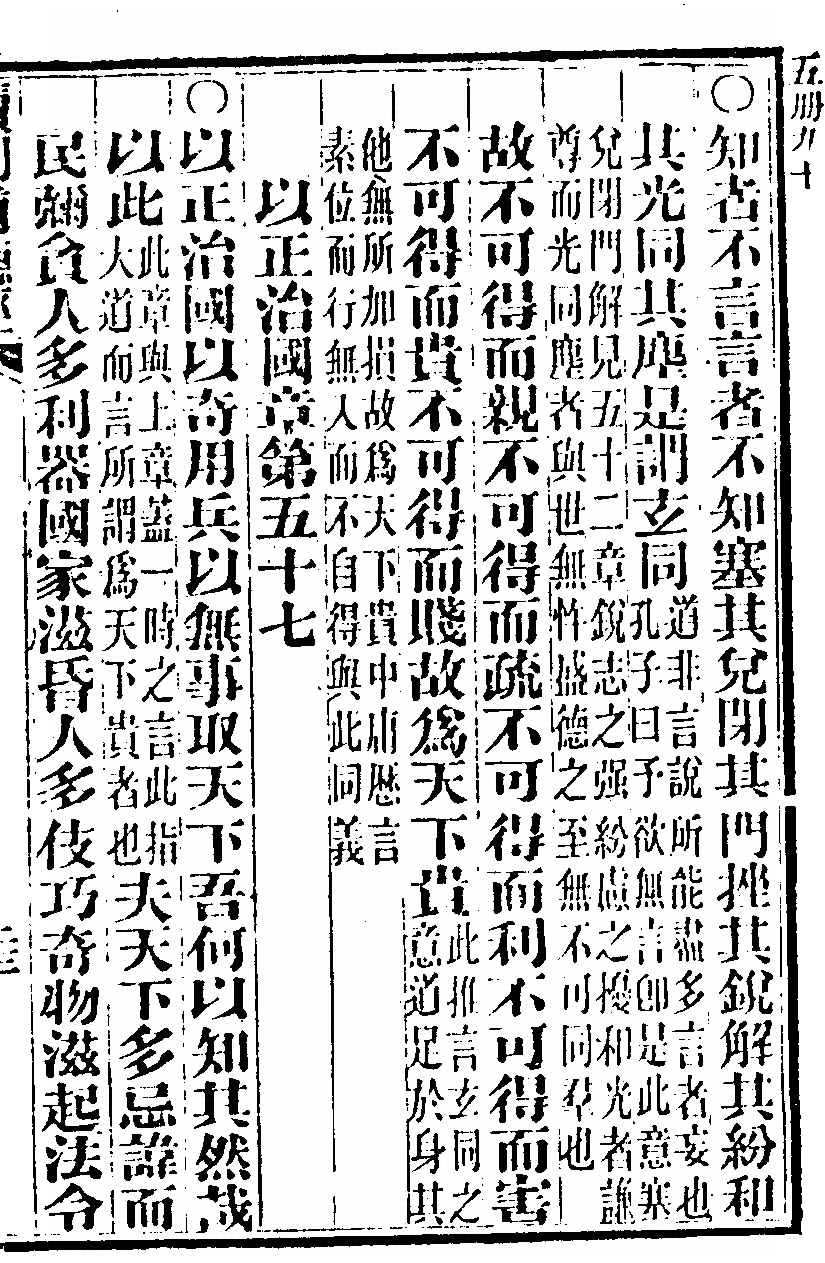 五册九十
〇知者不言言者不知塞其兌閉其門挫其銳解其紛和
其光同其塵是謂玄同
道非言說所能盡多言者妄也
孔子曰予欲無言卽是此意塞
兌閉門解見五十二章銳志之强紛慮之擾和光者謙
尊而光同塵者與世無忤盛德之至無不可同羣也
故不可得而親不可得而疏不可得而利不可得而害
不可得而貴不可得而賤故爲天下貴
此推言玄同之
意道足於身其
他無所加損故爲天下貴中庸歷言
素位而行無入而不自得與此同義
以正治國章第五十七
〇以正治國以奇用兵以無事取天下吾何以知其然哉
以此
此章與上章蓋一時之言此指
大道而言所謂爲天下貴者也
夫天下多忌諱而
民彌貧人多利器國家滋昏人多伎巧奇物滋起法令